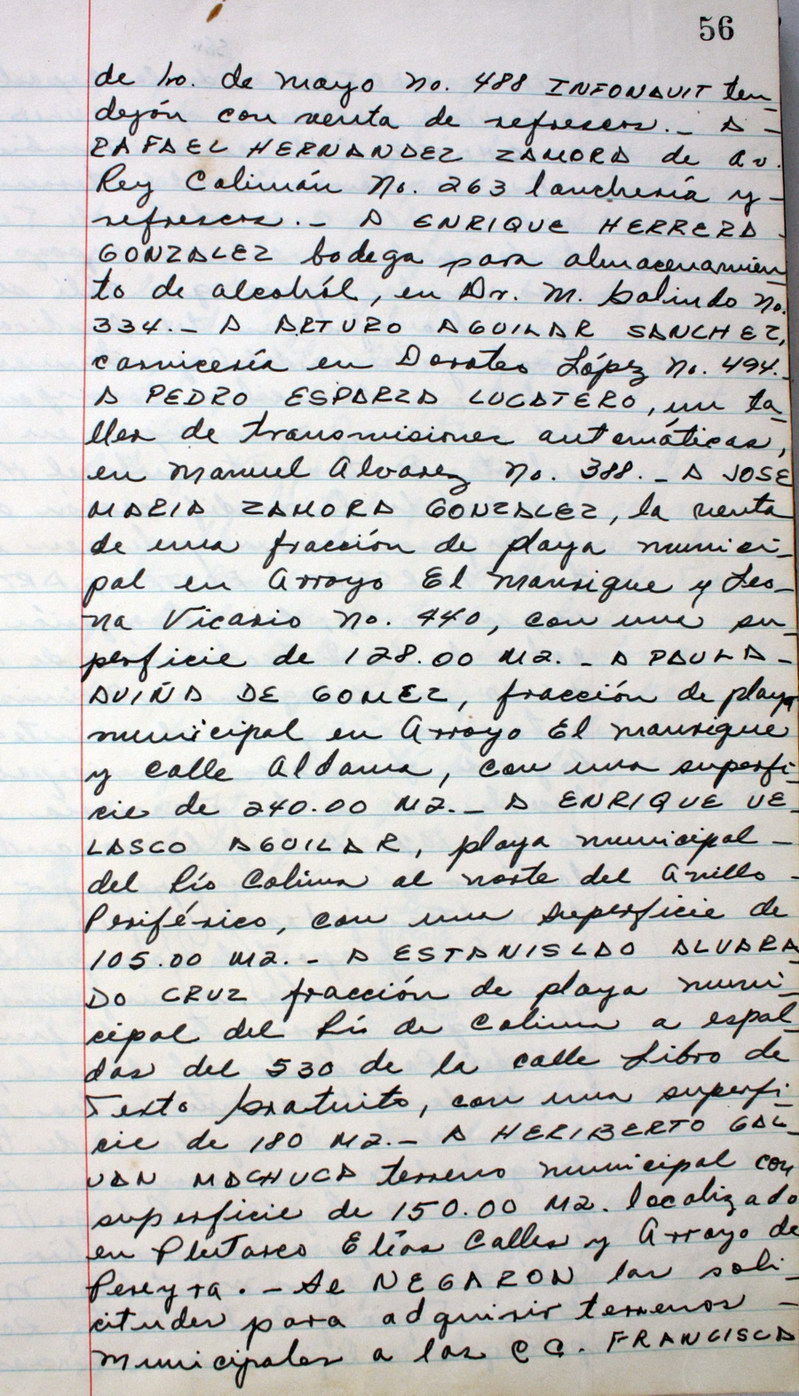 56
de 1o. de mayo No. 488 INFONAVIT ten
dejón con venta de refrescos.- A -
RAFAEL HERNANDEZ ZAMORA de av.
Rey Colimán No. 263 lonchería y -
refrescos.- A ENRIQUE HERRERA -
GONZALEZ bodega para almacenamien
to de alcohól, en Dr. M. Galindo No.
334.- A ARTURO AGUILAR SANCHEZ,
carnicería en Doroteo López No. 494.-
A PEDRO ESPARZA LUCATERO, un ta
ller de transmisiones automáticas,
en Manuel Alvarez No. 388.- A JOSE
MARIA ZAMORA GONZALEZ, la venta
de una fracción de playa munici-
pal en Arroyo El Manrique y Leo-
na Vicario No. 440, con una su-
perficie de 128.00 M2.- A PAULA -
AVIÑA DE GOMEZ, fracción de playa
municipal en Arroyo El Manrique
y calle Aldama, con una superfi-
cie de 240.00 M2.- A ENRIQUE VE-
LASCO AGUILAR, playa municipal -
del Río Colima al norte del Anillo -
Periférico, con una superficie de
105.00 M2.- A ESTANISLAO ALVARA
DO CRUZ fracción de playa muni-
cipal del Río de Colima a espal-
das del 530 de la calle Libro de
Texto Gratuito, con una superfi-
cie de 180 M2.- A HERIBERTO GAL-
VAN MACHUCA terreno municipal con
superficie de 150.00 M2. localizado
en Plutarco Elías Calles y Arroyo de
Pereyra.- Se NEGARON las soli-
citudes para adquirir terrenos -
municipales a las CC. FRANCISCA